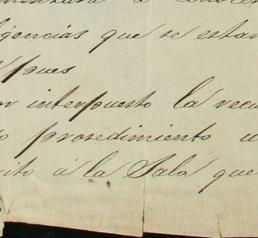 gencias que se estan
pues
or interpuesto la recu
o prosedimiento u
cito á la Sala que